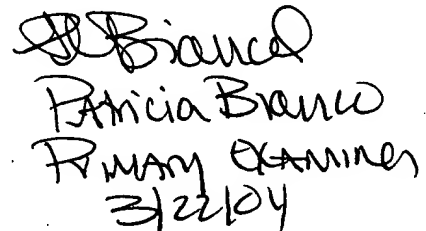 P Bianco
Patricia Bianco
Primary Examiner
3/22/04